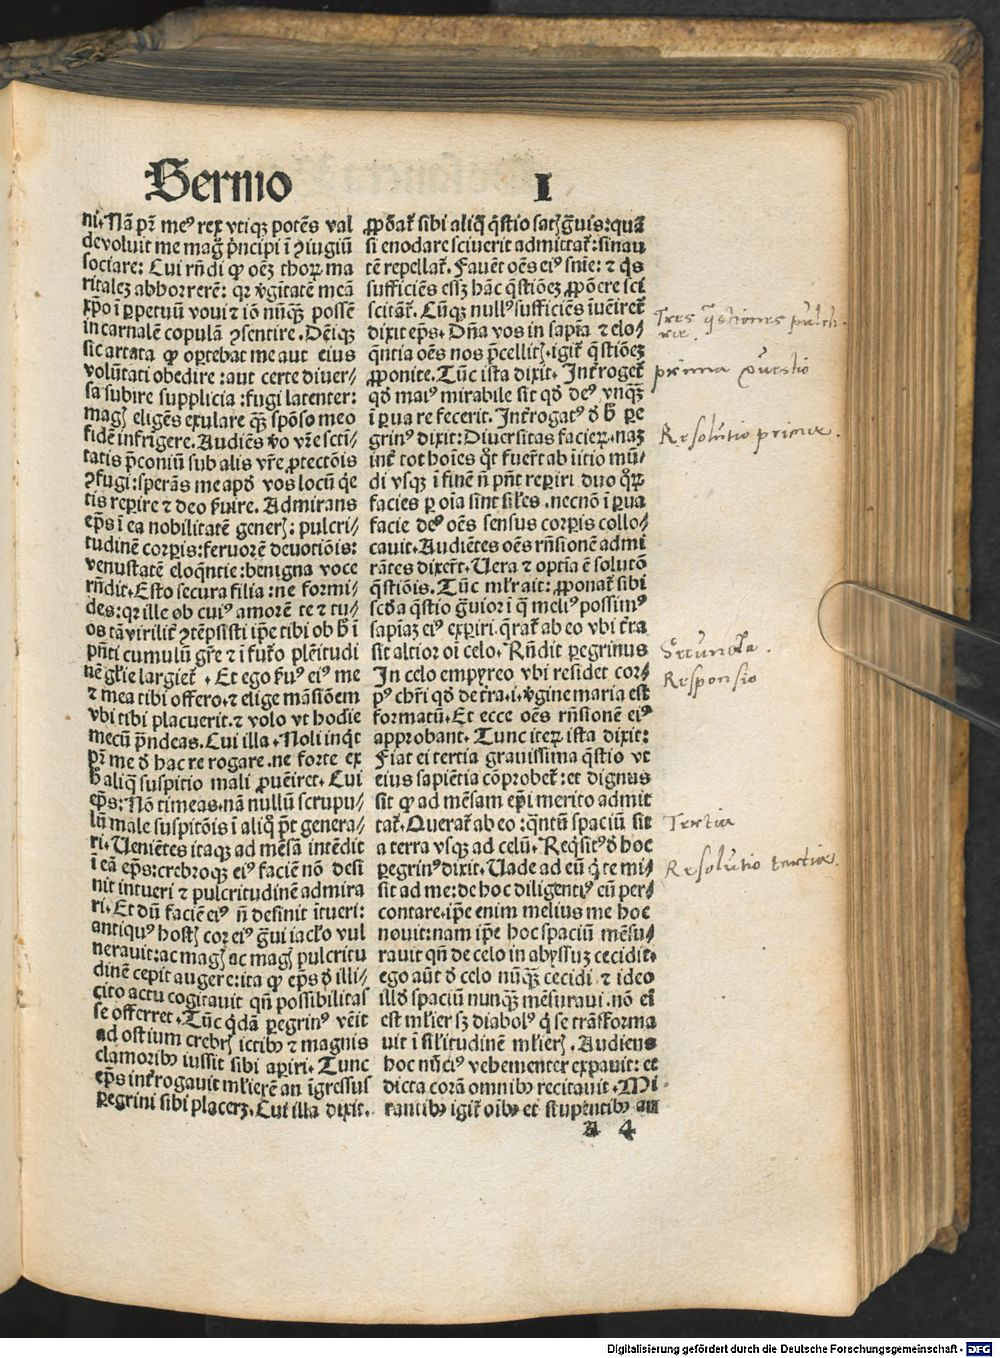 Sermo I
ni. Nã pr̃ meꝰ rex vtiqꝫ potẽs val
de voluit me mag̃ prĩncipi ĩ ꝯiugiũ
sociare: Cui rñdi ꝙ oẽʒ thoꝝ ma
ritaleʒ abhorrerẽ: qꝛ v̾gĩtatẽ meã
xp̃o ĩ ꝑpetuũ voui ⁊ iõ nũqꝫ possẽ
in carnalẽ copulã ꝯsentire. Dẽiqꝫ
sic artata ꝙ oꝑtebat me aut eius
volũtati obedire: aut certe diuer/
sa subire supplicia: fugi latenter:
magꝭ eligẽs exulare qꝫ̃ spõso meo
fidẽ infrigere. Audiẽs ṽo vr̃e scti/
tatis p̃coniũ sub alis vr̃e ꝓtectõis
ꝯfugi: sperãs me apd̾ vos locũ q̾e
tis reꝑire ⁊ deo s̾uire. Admirans
ep̃s ĩ ea nobilitatẽ generꝭ: pulcri/
tudinẽ corꝑis: feruorẽ deuotiõis:
venustatẽ eloq̃ntie: benigna voce
rñdit. Esto secura filia: ne formi/
des: qꝛ ille ob cuiꝰ amorẽ te ⁊ tu/
os tã virilit̾ ꝯtẽpsisti ip̃e tibi ob h̾ ĩ
pñti cumulũ gr̃e ⁊ ĩ fut̾o plẽitudi
nẽ gl̾ie largiet̾. Et ego s̾uꝰ eiꝰ me
⁊ mea tibi offero. ⁊ elige mãsiõem
vbi tibi placuerit. ⁊ volo vt hodie
mecũ prãndeas. Cui illa. Noli inq̾t
pr̃ me d̾ hac re rogare. ne forte ex
h̾ aliq̃ suspitio mali ꝓuẽiret. Cui
ep̃s: Nõ timeas. nã nullũ scrupu/
lũ male suspitõis ĩ aliq̾ p̃t genera/
ri. Veniẽtes itaqꝫ ad mẽsã intẽdit
ĩ eã ep̃s: crebroqꝫ eiꝰ faciẽ nõ desi
nit intueri ⁊ pulcritudinẽ admira
ri. Et dũ faciẽ eiꝰ ñ desinit ĩtueri:
antiquꝰ hostꝭ cor eiꝰ g̾ui iac̾lo vul
nerauit: ac magꝭ ac magꝭ pulcritu
dinẽ cepit augere: ita ꝙ ep̃s d̾ illi/
cito actu cogitauit qñ possibilitas
se offerret. Tũc q̾dã ꝑegrinꝰ vẽit
ad ostium crebrꝭ ictibꝰ ⁊ magnis
clamoribꝰ iussit sibi aꝑiri. Tunc
ep̃s int̾rogauit ml̾ierẽ an ĩgressus
ꝑegrini sibi placerꝫ. Cui illa dixit.
ꝓpõat̾ sibi aliq̃ q̃stio satꝭ g̾uis: quã
si enodare sciuerit admittat̾: sinau
tẽ repellat̾. Fauẽt oẽs eiꝰ sñie: ⁊ q̾s
sufficiẽs essꝫ hãc q̃stiõeʒ ꝓpõere sci
scitãt̾. Cũqꝫ nullꝰ sufficiẽs ĩuẽiret̾
dixit ep̃s. Dñã vos in sapĩa ⁊ elo/
q̃ntia oẽs nos p̃cellitꝭ. igit̾ q̃stiõeʒ
ꝓponite. Tũc ista dixit. Int̾roget̾
qd̾ maiꝰ mirabile sit qd̾ deꝰ vnqꝫ̃
ĩ ꝑua re fecerit. Int̾rogatꝰ d̾ h̾ ꝑe
grinꝰ dixit: Diuersitas facieꝝ. naʒ
int̾ tot hoĩes q̾t fuer̃t ab ĩitio mũ/
di vsqꝫ ĩ finẽ ñ pñt reꝑiri duo q̾ꝝ
facies ꝑ oĩa sint sil̾es. necnõ ĩ ꝑua
facie deꝰ oẽs sensus corꝑis collo/
cauit. Audiẽtes oẽs rñsionẽ admi
rãtes dixer̃t. Uera ⁊ optĩa ẽ solutõ
q̃stiõis. Tũc ml̾r ait: ꝓponat̾ sibi
scd̾a q̃stio g̾uior ĩ q̃ meliꝰ possimꝰ
sapĩaʒ eiꝰ exꝑiri. q̾rat̾ ab eo vbi t̾ra
sit altior oĩ celo. Rñdit ꝑegrinus
In celo empyreo vbi residet cor/
pꝰ chr̃i qd̾ de t̾ra. i. v̾gine maria est
formatũ. Et ecce oẽs rñsionẽ eiꝰ
approbant. Tunc iteꝝ ista dixit:
Fiat ei tertia grauissima q̃stio vt
eius sapiẽtia cõprobet̾: et dignus
sit ꝙ ad mẽsam ep̃i merito admit
tat̾. Querat̾ ab eo: q̃ntũ spaciũ sit
a terra vsqꝫ ad celũ. Req̾sitꝰ d̾ hoc
ꝑegrinꝰ dixit. Uade ad eũ q̾ te mi/
sit ad me: de hoc diligentiꝰ eũ per/
contare. ip̃e enim melius me hoc
nouit: nam ip̃e hoc spaciũ mẽsu/
rauit qñ de celo in abyssuʒ cecidit.
ego aũt d̾ celo nũqꝫ̃ cecidi. ⁊ ideo
illd̾ spaciũ nunqꝫ̃ mẽsuraui. nõ ei
est ml̾ier sʒ diabolꝰ q̾ se trãsforma
uit ĩ sil̾itudinẽ ml̾ierꝭ. Audiens
hoc nũciꝰ vehementer expauit: et
dicta corã omnibꝰ recitauit. Mi
rantibꝰ igit̾ oĩbꝰ et stupẽtibꝰ au
A 4
Tres q̃stiones pulch
rae.
prima quaestio
Resolutio primae.
Secunda.
Responsio
Tertia
Resolutio tertiae.
Digitalisierung gefördert durch die Deutsche Forschungsgemeinschaft - DFG